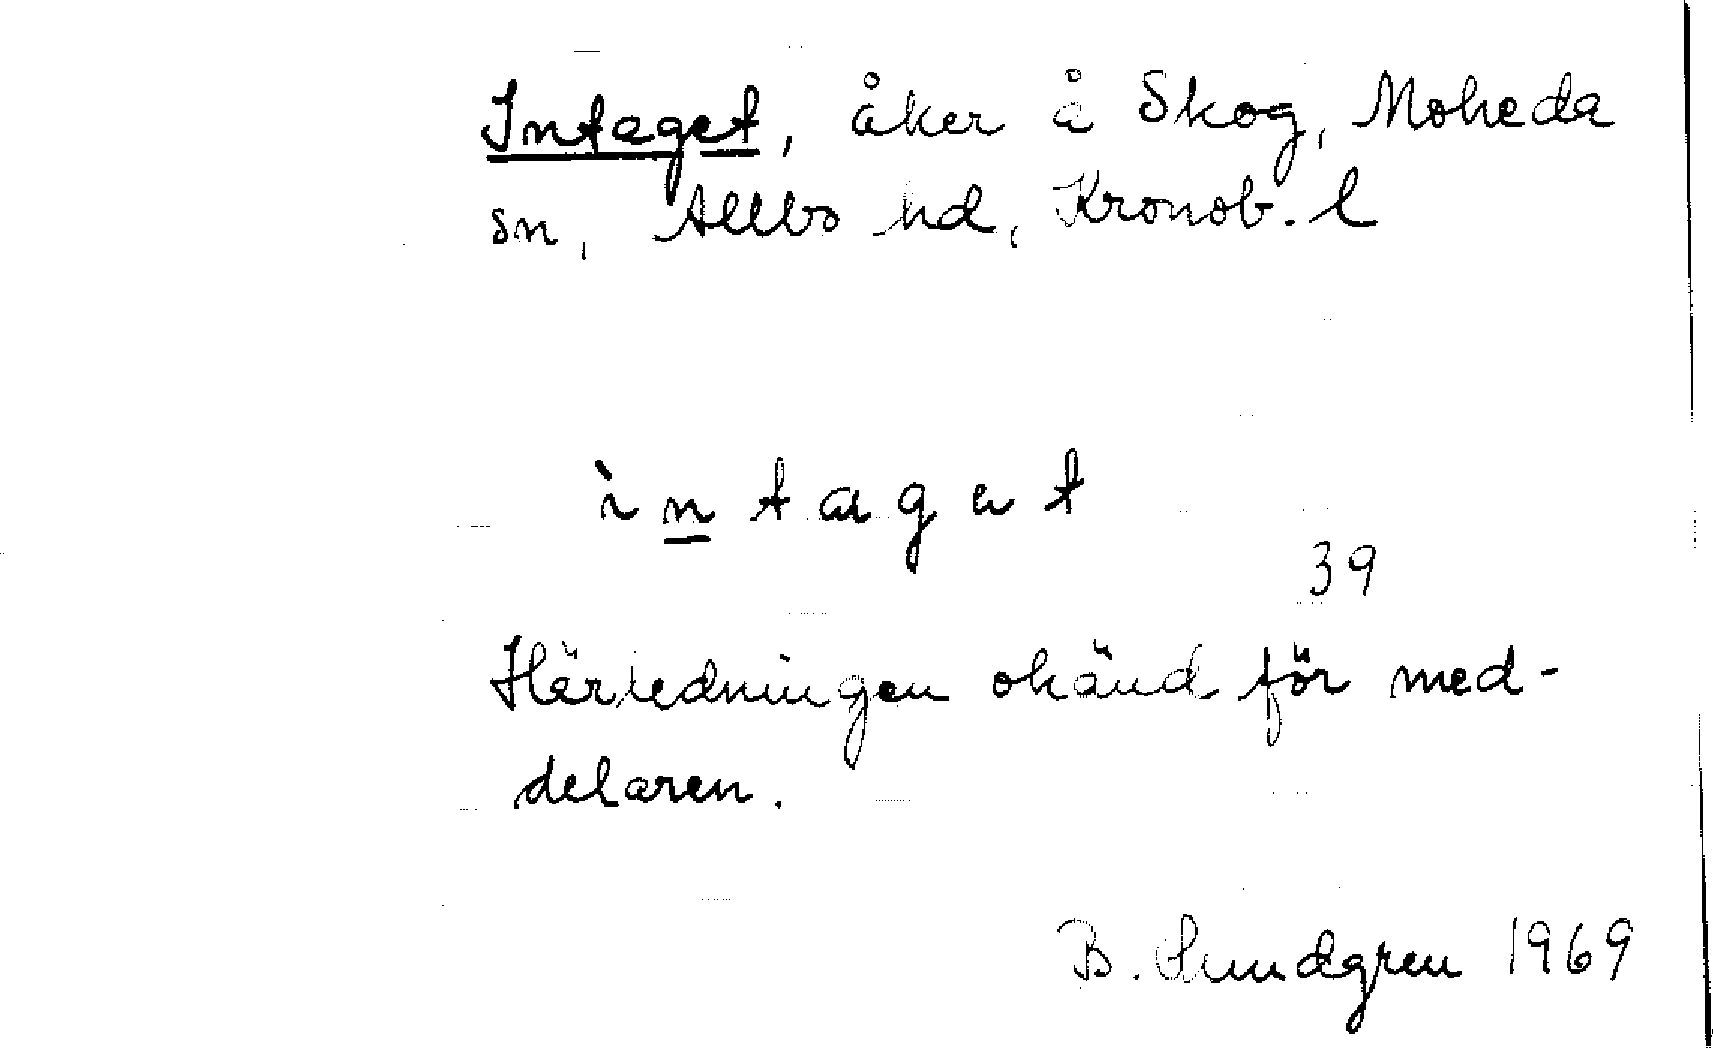 Intaget, åker å Skog, Moheda
sn, Allbo hd, Kronob. l
ìntaget
39
Härledningen okänd för med-
delaren.
B. Sundgren 1969